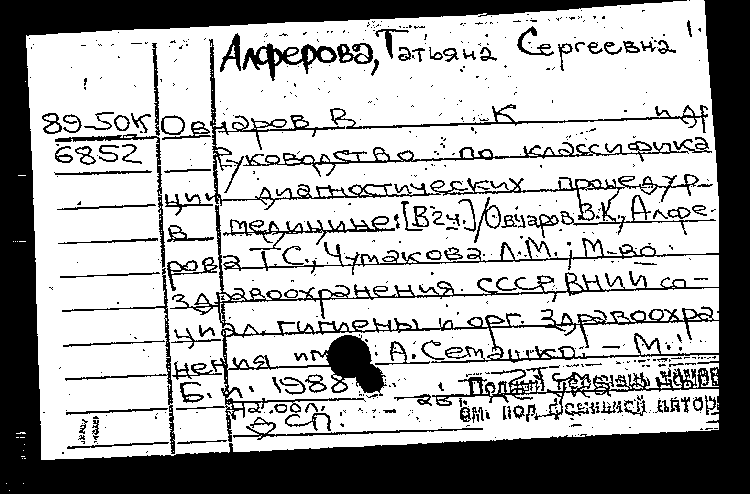 Алферова, Татьяна Сергеевна
89-50К Овчаров, В К и др
6852 Руководство по классифика
ции диагностических процедур
в медицине: [В 2ч.] / Овчаров В.К., Алфе-
рова Т.С., Чумакова Л.М.; М-во
здравоохранения СССР, ВНИИ со-
циал. гигиены и орг. здравоохра
нения им А. Семашко. - М.:
Б.и. 1988
На обл.
ДСП.